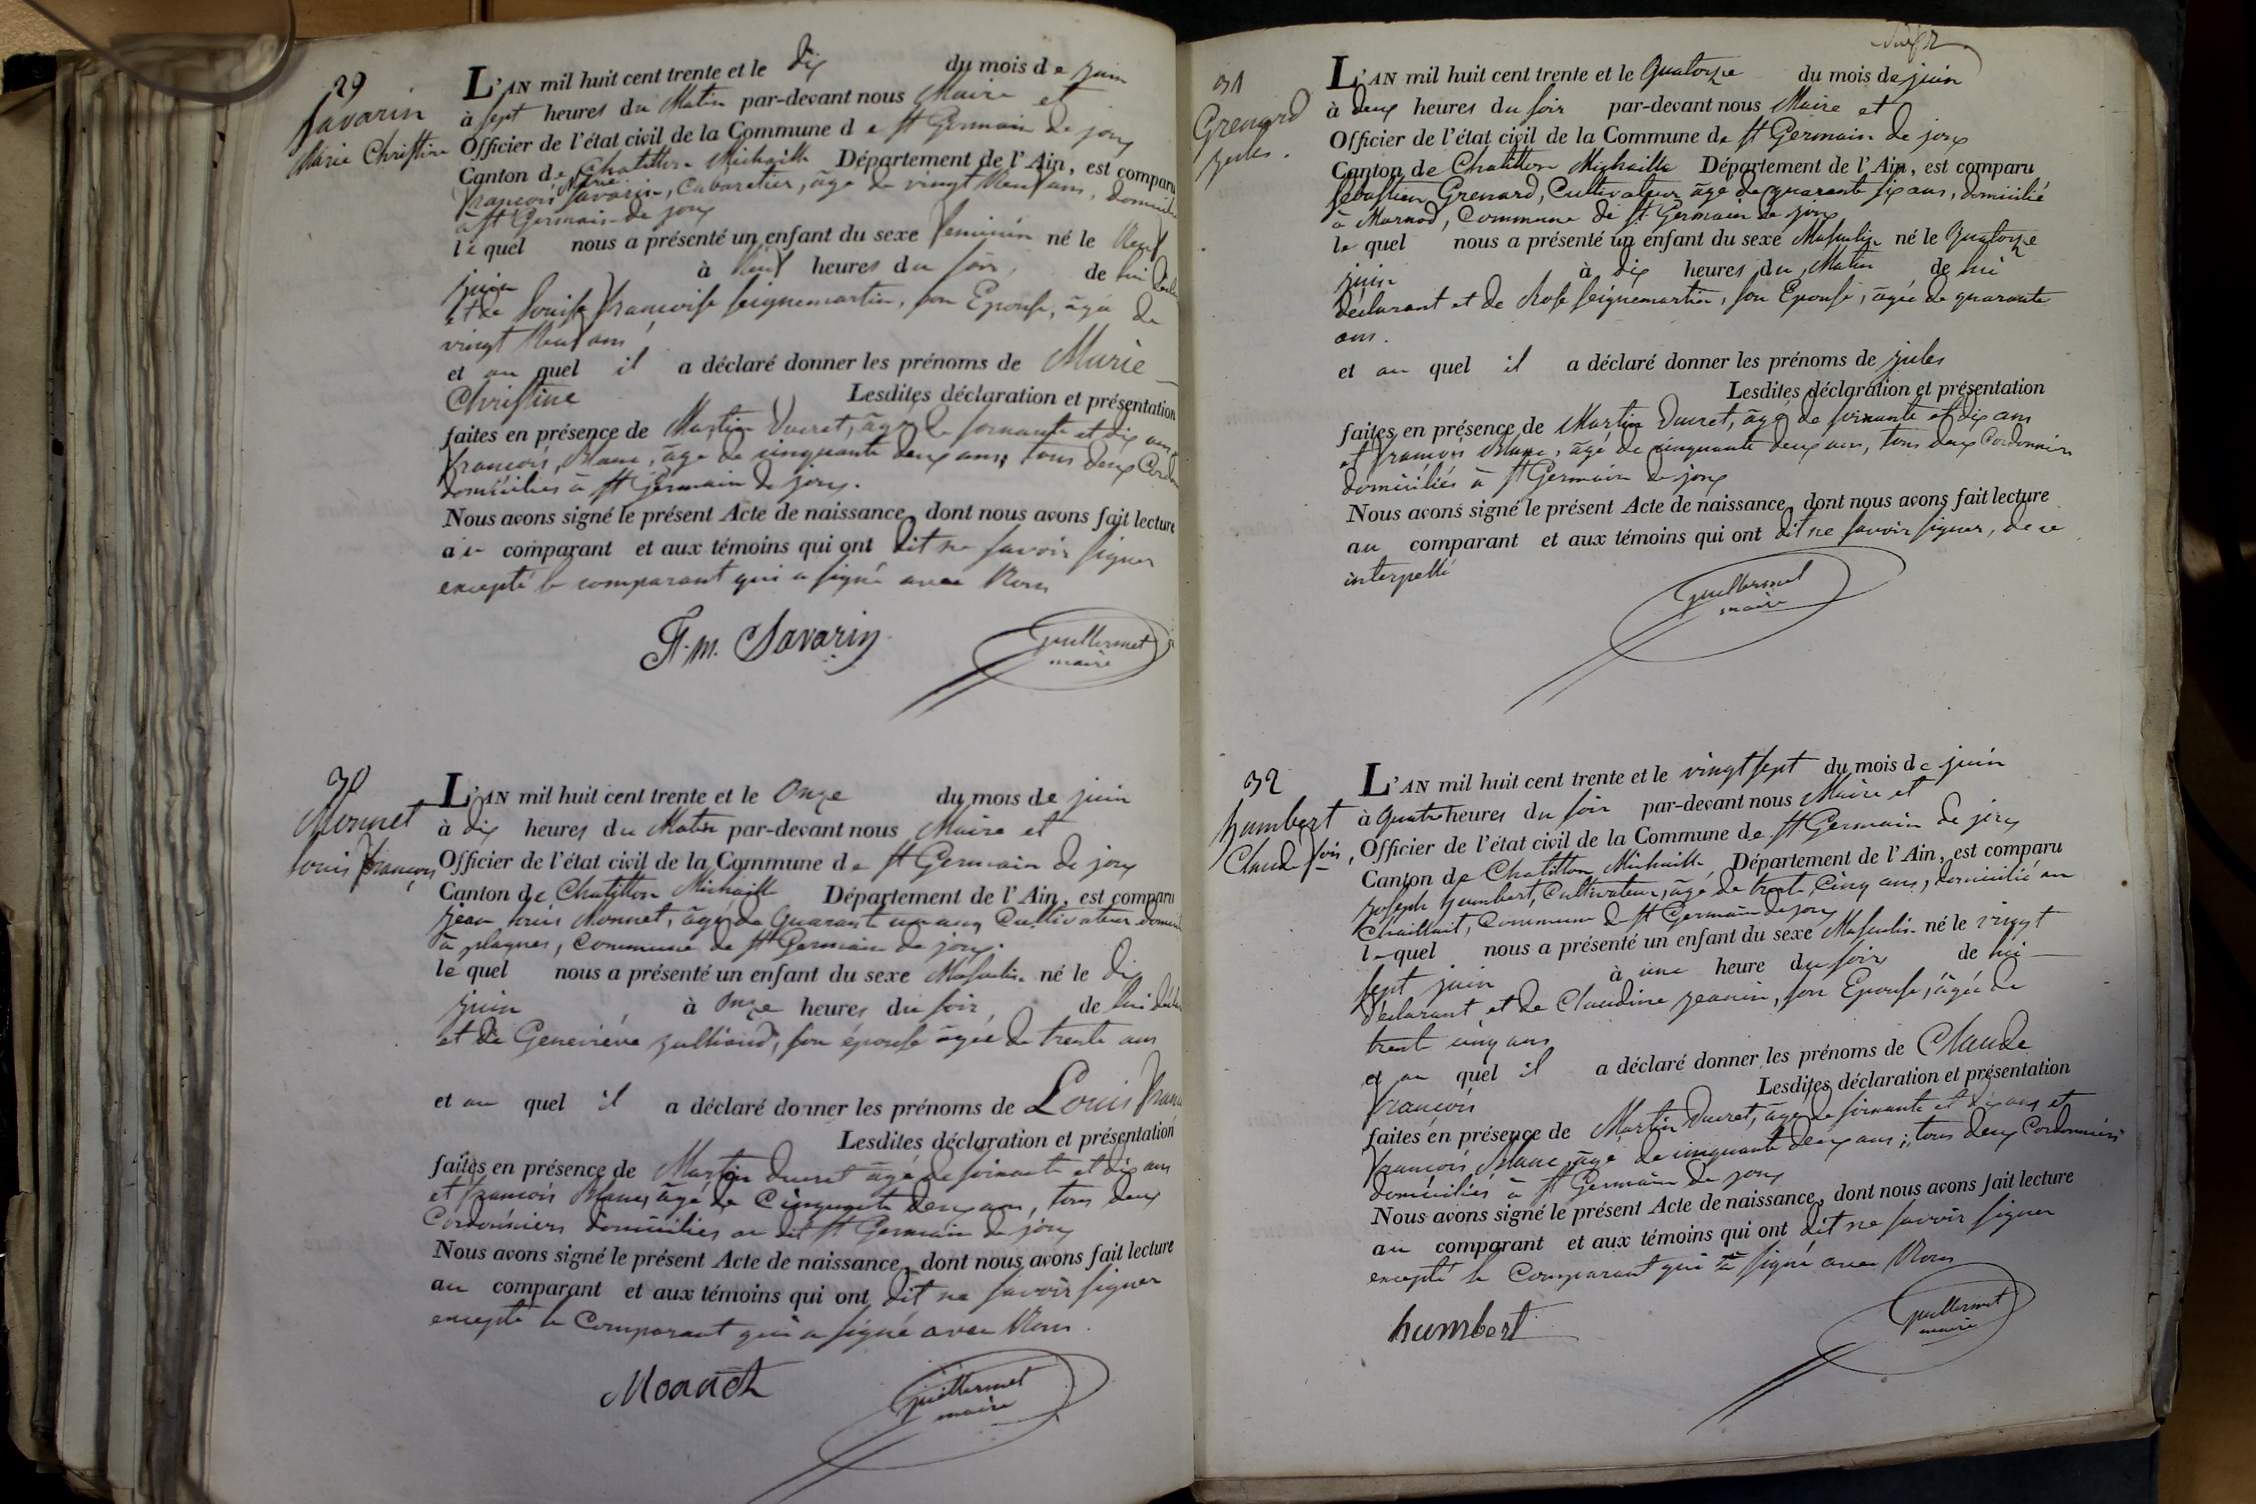 29
Savarin
Marie Christine
L'AN mil huit cent trente et le dix du mois de juin
à sept heures du Matin par-devant nous Maire et
Officier de l'état civil de la Commune de St Germain de joux
Canton de Chatillon Michaille Département de l'Ain, est comparu
françois Marie Savarin, Cabaretier, âgé de vingt neuf ans, domicilié
à St Germain de joux
lequel nous a présenté un enfant du sexe feminin né le Neuf
juin à heures du soir, de lui
et de Louise françoise Seignemartin, son Epouse, âgée de
vingt Neuf ans
et au quel il a déclaré donner les prénoms de Marie
Christine Lesdites déclaration et présentation
faites en présence de Martin Ducret, âgé de soixante et dix ans
françois Blanc, âgé de cinquante deux ans, tous deux
domiciliés à St Germain de joux.
Nous avons signé le présent Acte de naissance, dont nous avons fait lecture
au comparant et aux témoins qui ont dit ne savoir signer
excepté le comparant qui a signé avec Nous
F. M. Savarin
Guillermet
maire
30
Monnet
Louis françois
L'AN mil huit cent trente et le Onze du mois de juin
à dix heures du Matin par-devant nous Maire et
Officier de l'état civil de la Commune de St Germain de joux
Canton de Chatillon Michaille Département de l'Ain, est comparu
jean Louis Monnet, âgé de Quarante un ans, Cultivateur
à plagnes, Commune de St Germain de joux.
lequel nous a présenté un enfant du sexe Masculin né le dix
juin à onze heures du soir, de lui
et de Geneviève julliand, son épouse âgée de trente ans
et au quel il a déclaré donner les prénoms de Louis
Lesdites déclaration et présentation
faites en présence de Martin Ducret âgé de soixante et dix ans
et françois Blanc, âgé de Cinquante deux ans, tous deux
Cordonniers domiciliés au dit St Germain de joux
Nous avons signé le présent Acte de naissance, dont nous avons fait lecture
au comparant et aux témoins qui ont dit ne savoir signer
excepté le Comparant qui a signé avec Nous.
Monnet
Guillermet
maire
31
Grenard
jules.
L'AN mil huit cent trente et le Quatorze du mois de juin
à deux heures du soir par-devant nous Maire et
Officier de l'état civil de la Commune de St Germain de joux
Canton de Chatillon Michaille Département de l'Ain, est comparu
Sébastien Grenard, Cultivateur âgé de quarante six ans, domicilié
à Marnod, Commune de St Germain de joux
lequel nous a présenté un enfant du sexe Masculin né le Quatorze
juin à dix heures du Matin de lui
déclarant et de Rose Seignemartin, son Epouse, âgée de quarante
ans.
et au quel il a déclaré donner les prénoms de jules
Lesdites déclaration et présentation
faites en présence de Martin Ducret, âgé de soixante et dix ans
et françois Blanc, âgé de cinquante deux ans, tous deux Cordonniers
domiciliés à St Germain de joux
Nous avons signé le présent Acte de naissance, dont nous avons fait lecture
au comparant et aux témoins qui ont dit ne savoir signer, de ce
interpellé
Guillermet
maire
32
humbert
Claude fois,
L'AN mil huit cent trente et le vingt sept du mois de juin
à Quatre heures du soir par-devant nous Maire et
Officier de l'état civil de la Commune de St Germain de joux
Canton de Chatillon Michaille, Département de l'Ain, est comparu
joseph humbert, Cultivateur, âgé de trente Cinq ans, domicilié au
Commune de St Germain de joux
lequel nous a présenté un enfant du sexe Masculin né le vingt
sept juin à une heure du soir de lui
déclarant et de Claudine jeanin, son Epouse, âgée de
trente cinq ans
et au quel il a déclaré donner les prénoms de Claude
françois Lesdites déclaration et présentation
faites en présence de Martin Ducret, âgé de soixante et dix ans et
françois Blanc, âgé de cinquante deux ans, tous deux Cordonniers
domiciliés à St Germain de joux
Nous avons signé le présent Acte de naissance, dont nous avons fait lecture
au comparant et aux témoins qui ont dit ne savoir signer
excepté le Comparant qui a signé avec Nous
humbert
Guillermet
maire